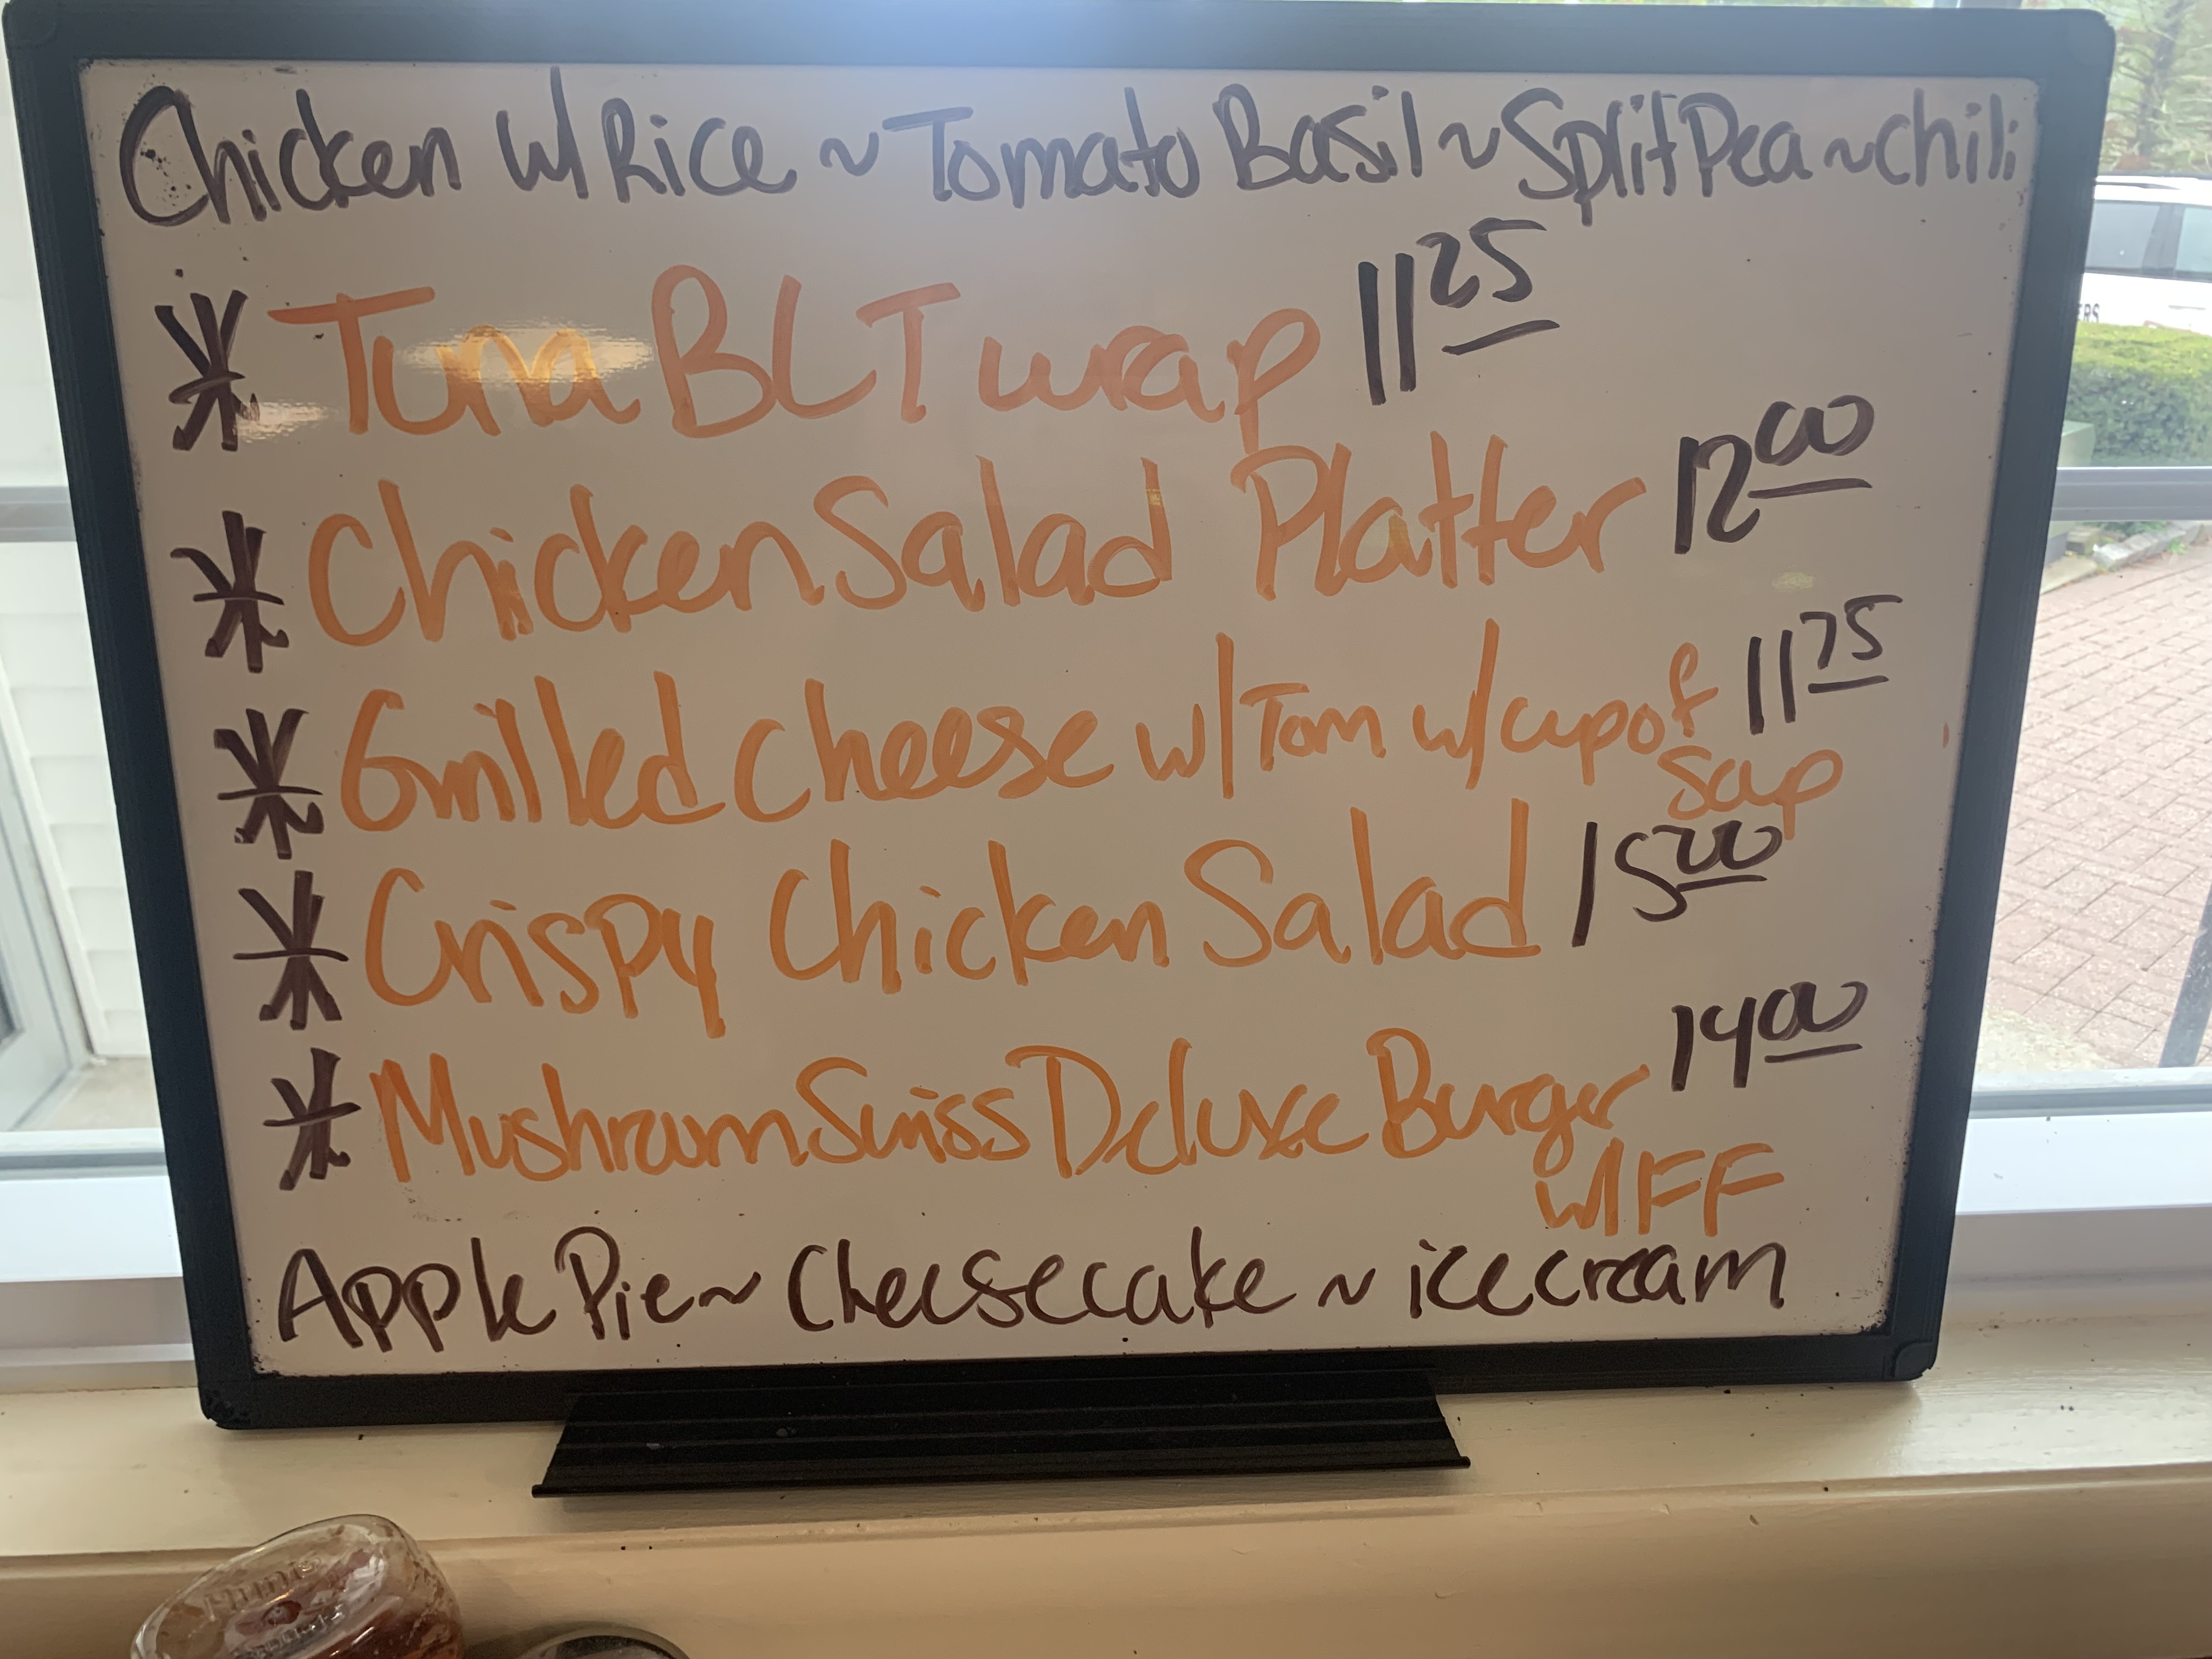 Chicken w/ Rice ~ Tomato Basil ~ Split Pea ~ chili
* Tuna BLT wrap 11 25
* Chicken Salad Platter 12 00
* Grilled cheese w/ Tom w/ cup of 11 75
soup
* Crispy Chicken Salad 15 00
* Mushroom Swiss Deluxe Burger 14 00
w/ FF
Apple Pie ~ Cheesecake ~ ice cream